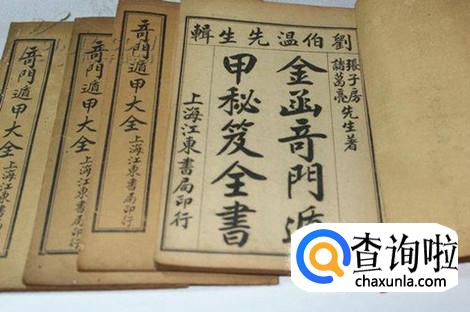 劉伯温先生輯
張子房
諸葛亮
先生著
金函竒門遁
甲秘笈全書
上海江東書局印行
竒門遁甲大全
上海江東書局印行
竒門遁甲大全
上海江東書局印行
竒門遁甲大全
上海江東書局印行
查询啦
chaxunla.com